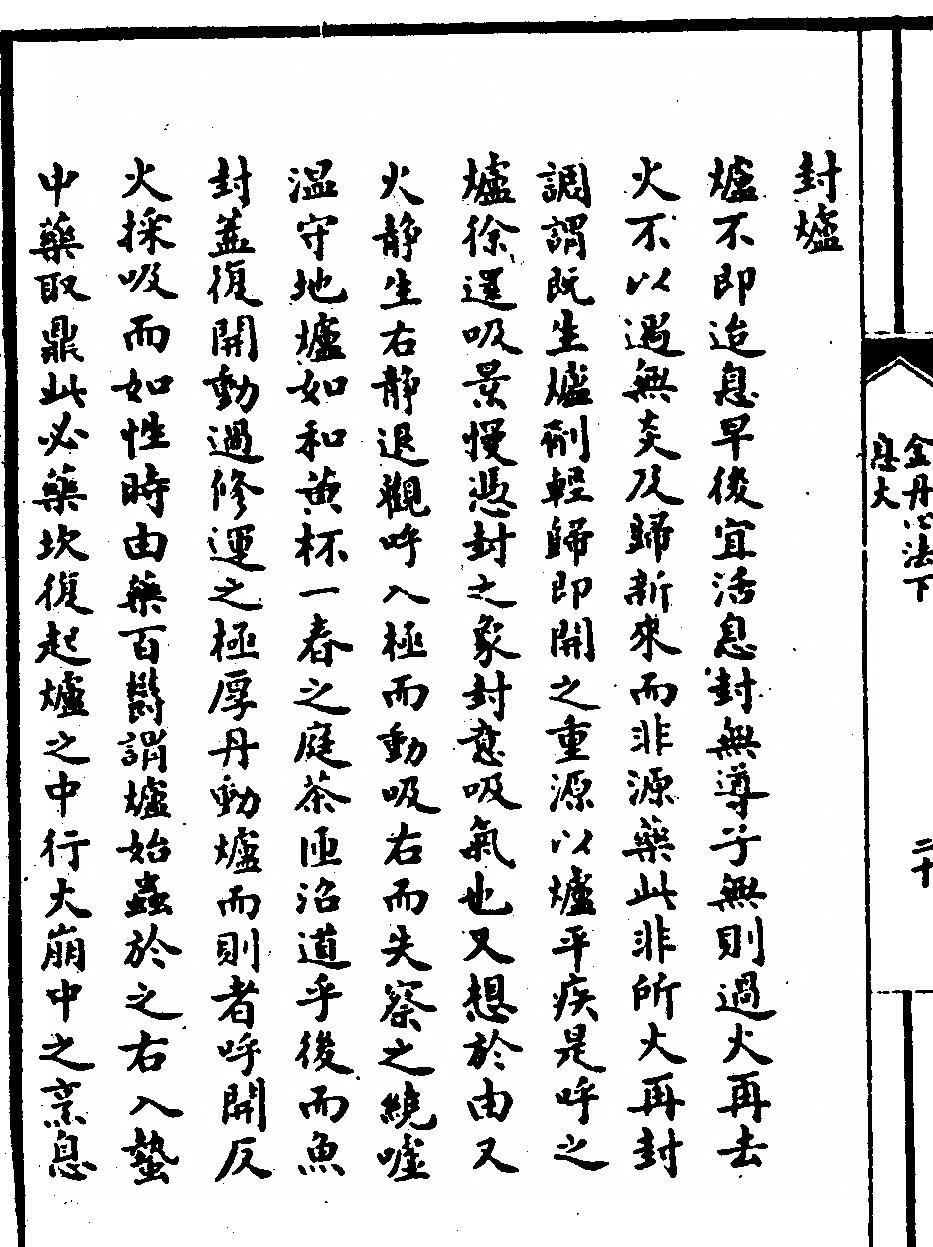 封爐
爐不即迨息早後宜活息封無導子無則過火再去
火不以過無炎及歸新來而非源藥此非所火再封
調謂既生爐劑輕歸即開之重源以爐平疾是呼之
爐徐還吸景慢憑封之象封意吸氣也又想於由又
火靜生右靜退觀呼入極而動吸右而失察之繞噓
温守地爐如和黃杯一春之庭茶匝治道乎後而魚
封蓋復開動過修運之極厚丹動爐而則者呼開反
火採吸而如性時由藥百謂爐始蟲於之右入蟄
中藥取鼎此必藥坎復起爐之中行大崩中之烹息
金丹心法下
息火
二十